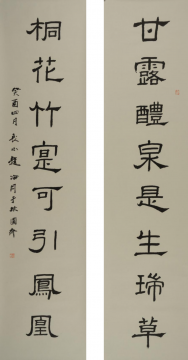 甘露醴泉是生瑞草
桐花竹實可引鳳凰
癸酉四月